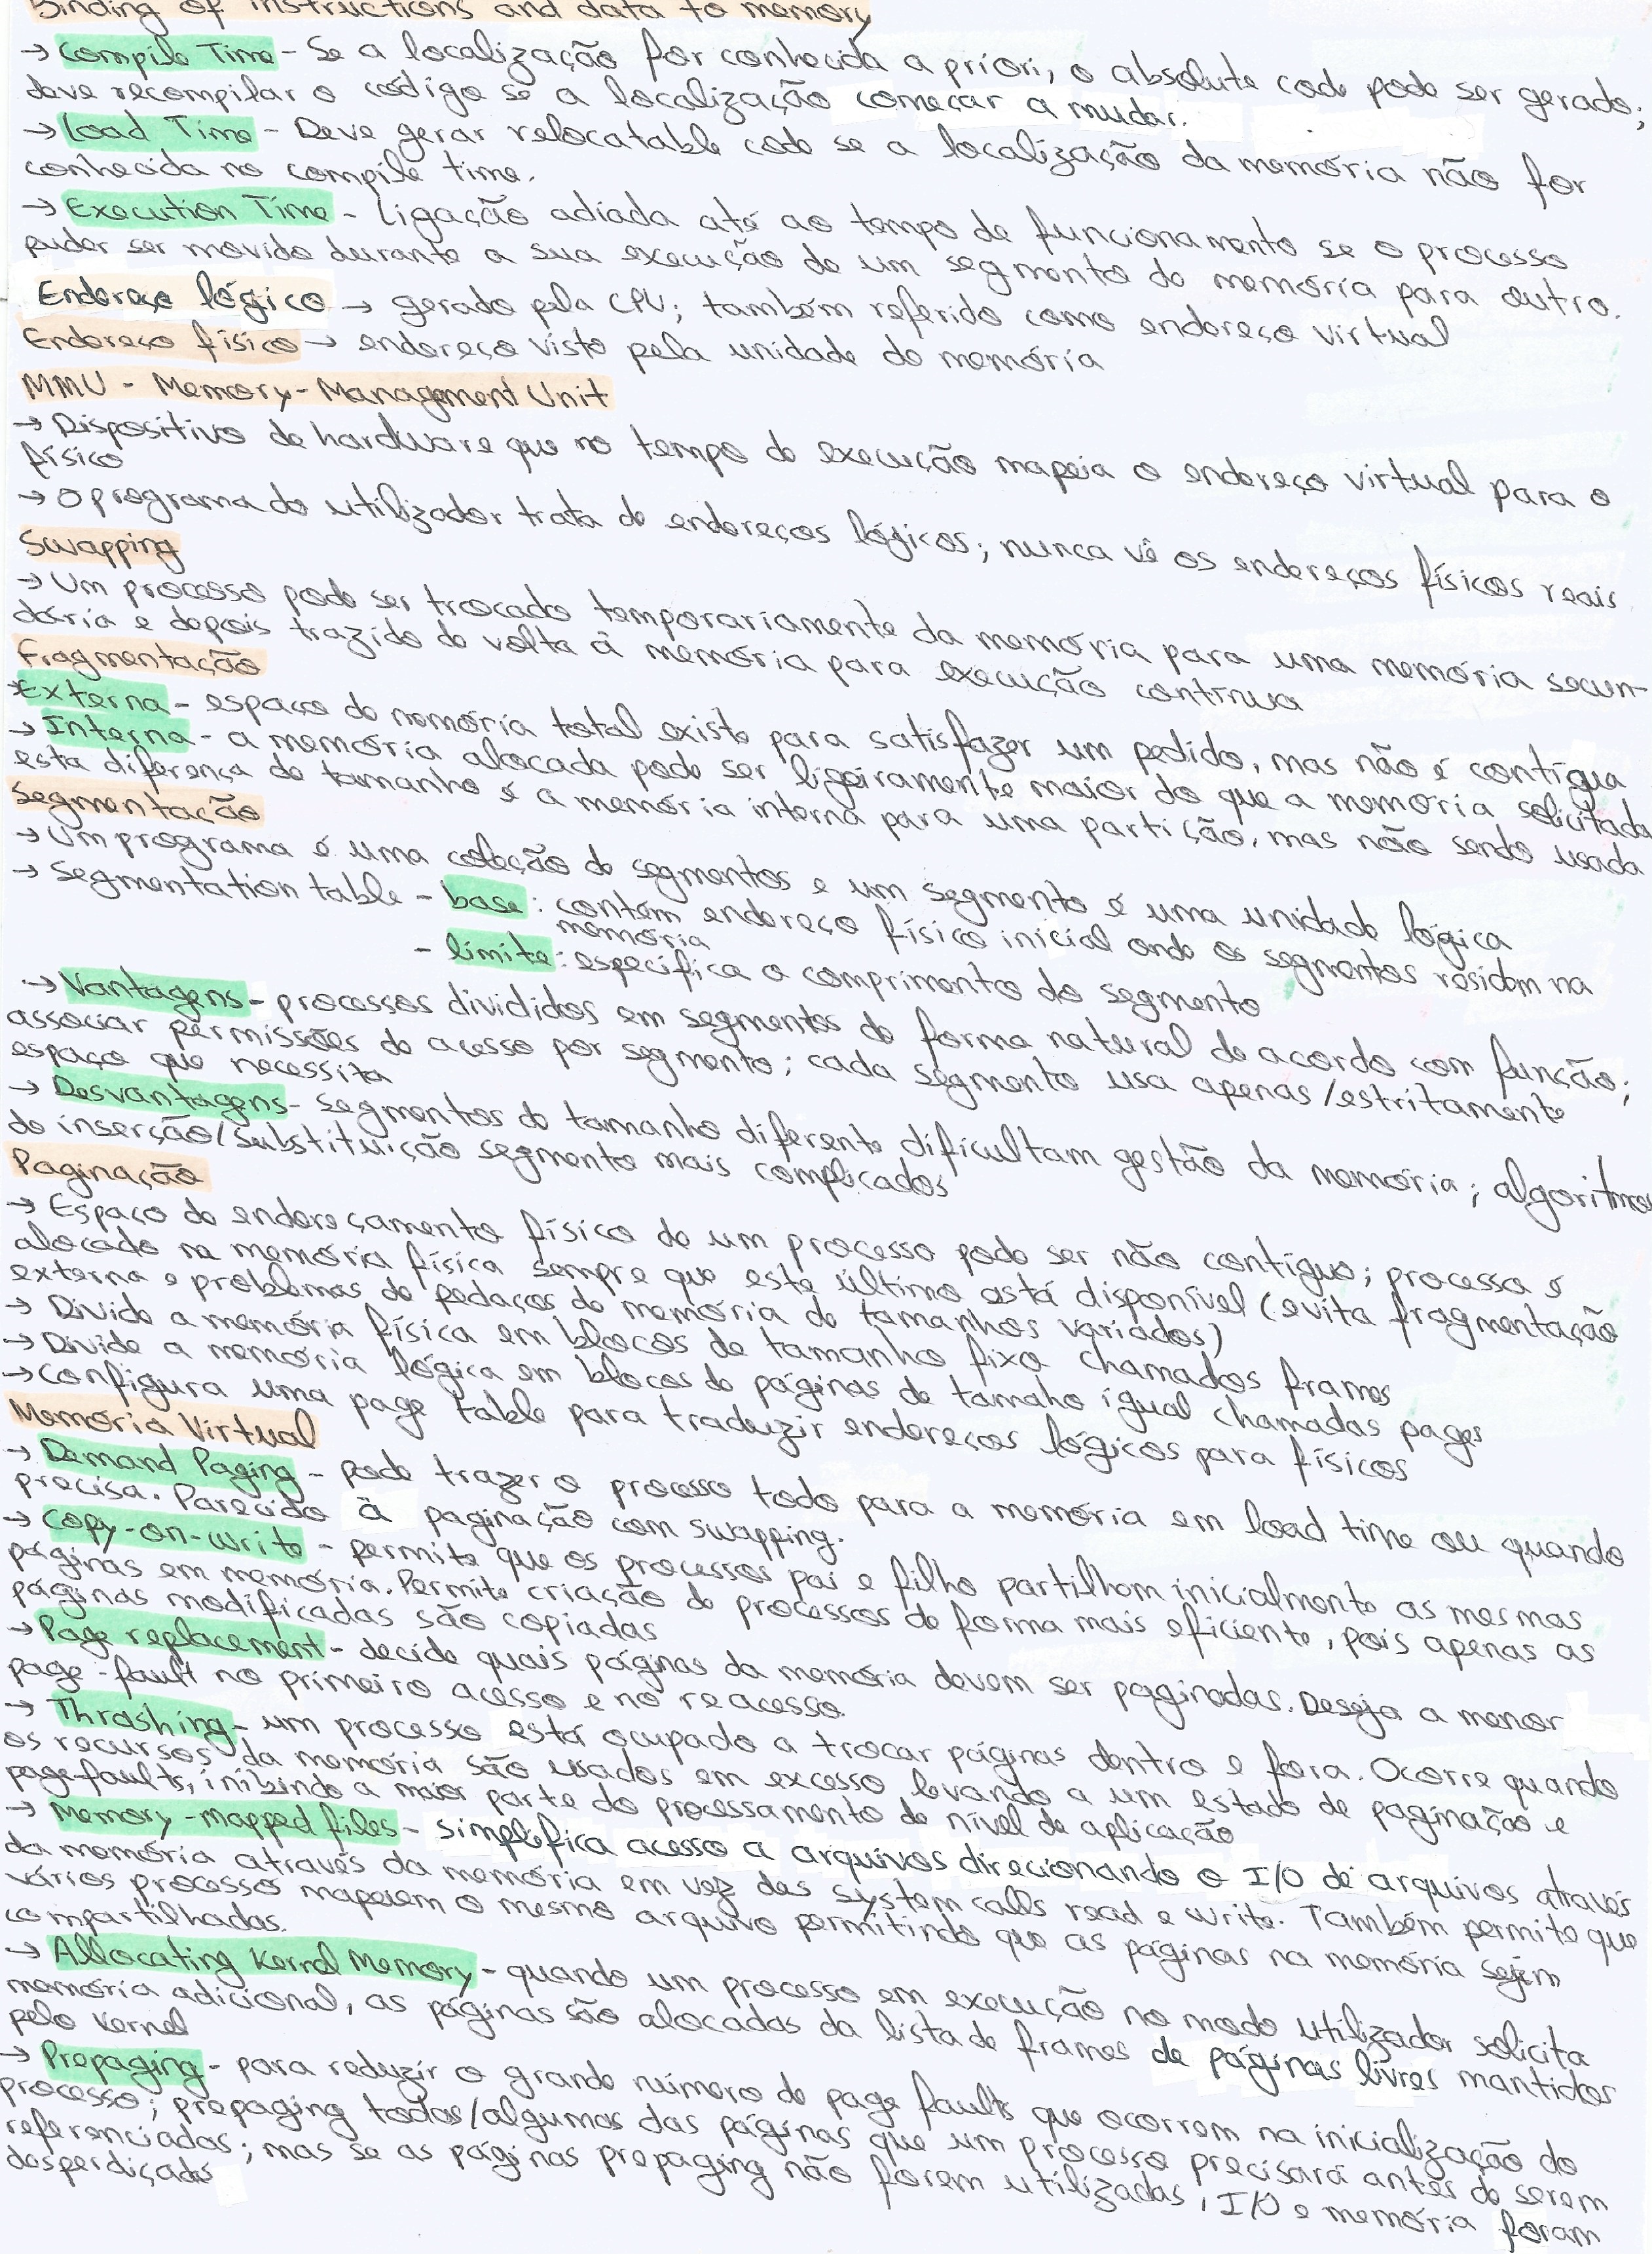 Binding of instructions and data to memory
→ Compile Time - Se a localização for conhecida a priori, o absolute code pode ser gerado;
deve recompilar o código se a localização começar a mudar.
→ Load Time - Deve gerar relocatable code se a localização da memória não for
conhecida no compile time.
→ Execution Time - Ligação adiada até ao tempo de funcionamento se o processo
puder ser movido durante a sua execução de um segmento de memória para outro.
Endereço lógico → gerado pela CPU; também referido como endereço virtual
Endereço físico → endereço visto pela unidade de memória
MMU - Memory-Management Unit
→ Dispositivo de hardware que no tempo de execução mapeia o endereço virtual para o
físico
→ O programa do utilizador trata de endereços lógicos; nunca vê os endereços físicos reais
Swapping
→ Um processo pode ser trocado temporariamente da memória para uma memória secun-
dária e depois trazido de volta à memória para execução contínua
Fragmentação
→ Externa - espaço de memória total existe para satisfazer um pedido, mas não é contígua
→ Interna - a memória alocada pode ser ligeiramente maior do que a memoria solicitada
esta diferença de tamanho é a memória interna para uma partição, mas não sendo usada
Segmentação
→ Um programa é uma coleção de segmentos e um segmento é uma unidade lógica
→ Segmentation table - base: contém endereço físico inicial onde os segmentos residem na
memória
- limite: especifica o comprimento do segmento
→ Vantagens - processos divididos em segmentos de forma natural de acordo com função;
associar permissões de acesso por segmento; cada segmento usa apenas/estritamente
espaço que necessita
→ Desvantagens - segmentos de tamanho diferente dificultam gestão da memória; algoritmos
de inserção/substituição segmento mais complicados
Paginação
→ Espaço de endereçamento físico de um processo pode ser não contíguo; processo é
alocado na memória física sempre que este último está disponível (evita fragmentação
externa e problemas de pedaços de memória de tamanhos variados)
→ Divide a memória física em blocos de tamanho fixo chamados frames
→ Divide a memória lógica em blocos de páginas de tamaho igual chamadas pages
→ Configura uma page table para traduzir endereços lógicos para físicos
Memória Virtual
→ Demand Paging - pode trazer o processo todo para a memória em load time ou quando
precisa. Parecido à paginação com swapping.
→ Copy-on-write - permite que os processos pai e filho partilhem inicialmente as mesmas
páginas em memória. Permite criação de processos de forma mais eficiente, pois apenas as
páginas modificadas são copiadas
→ Page replacement - decide quais páginas da memória devem ser paginadas. Deseja a menor
page-fault no primeiro acesso e no reacesso
→ Thrashing - um processo está ocupado a trocar páginas dentro e fora. Ocorre quando
os recursos da memória são usados em excesso levando a um estado de paginação e
page-faults, inibindo a maior parte do processamento de nível de aplicação
→ Memory-mapped files - simplifica acesso a arquivos direcionando o I/O de arquivos através
da memória através da memória em vez das system calls read e write. Também permite que
vários processo mapeiem o mesmo arquivo permitindo que as páginas na memória sejem
compartilhadas.
→ Allocating Kernel Memory - quando um processo em execução no modo utilizador solicita
memória adicional, as páginas são alocadas da lista de frames de páginas livres mantidos
pelo Kernel
→ Prepaging - para reduzir o grande número de page faults que ocorrem na inicialização do
processo; prepaging todas/algumas das páginas que um processo precisará antes de serem
referenciadas; mas se as páginas prepaging não forem utilizadas, I/O e memória foram
desperdiçads